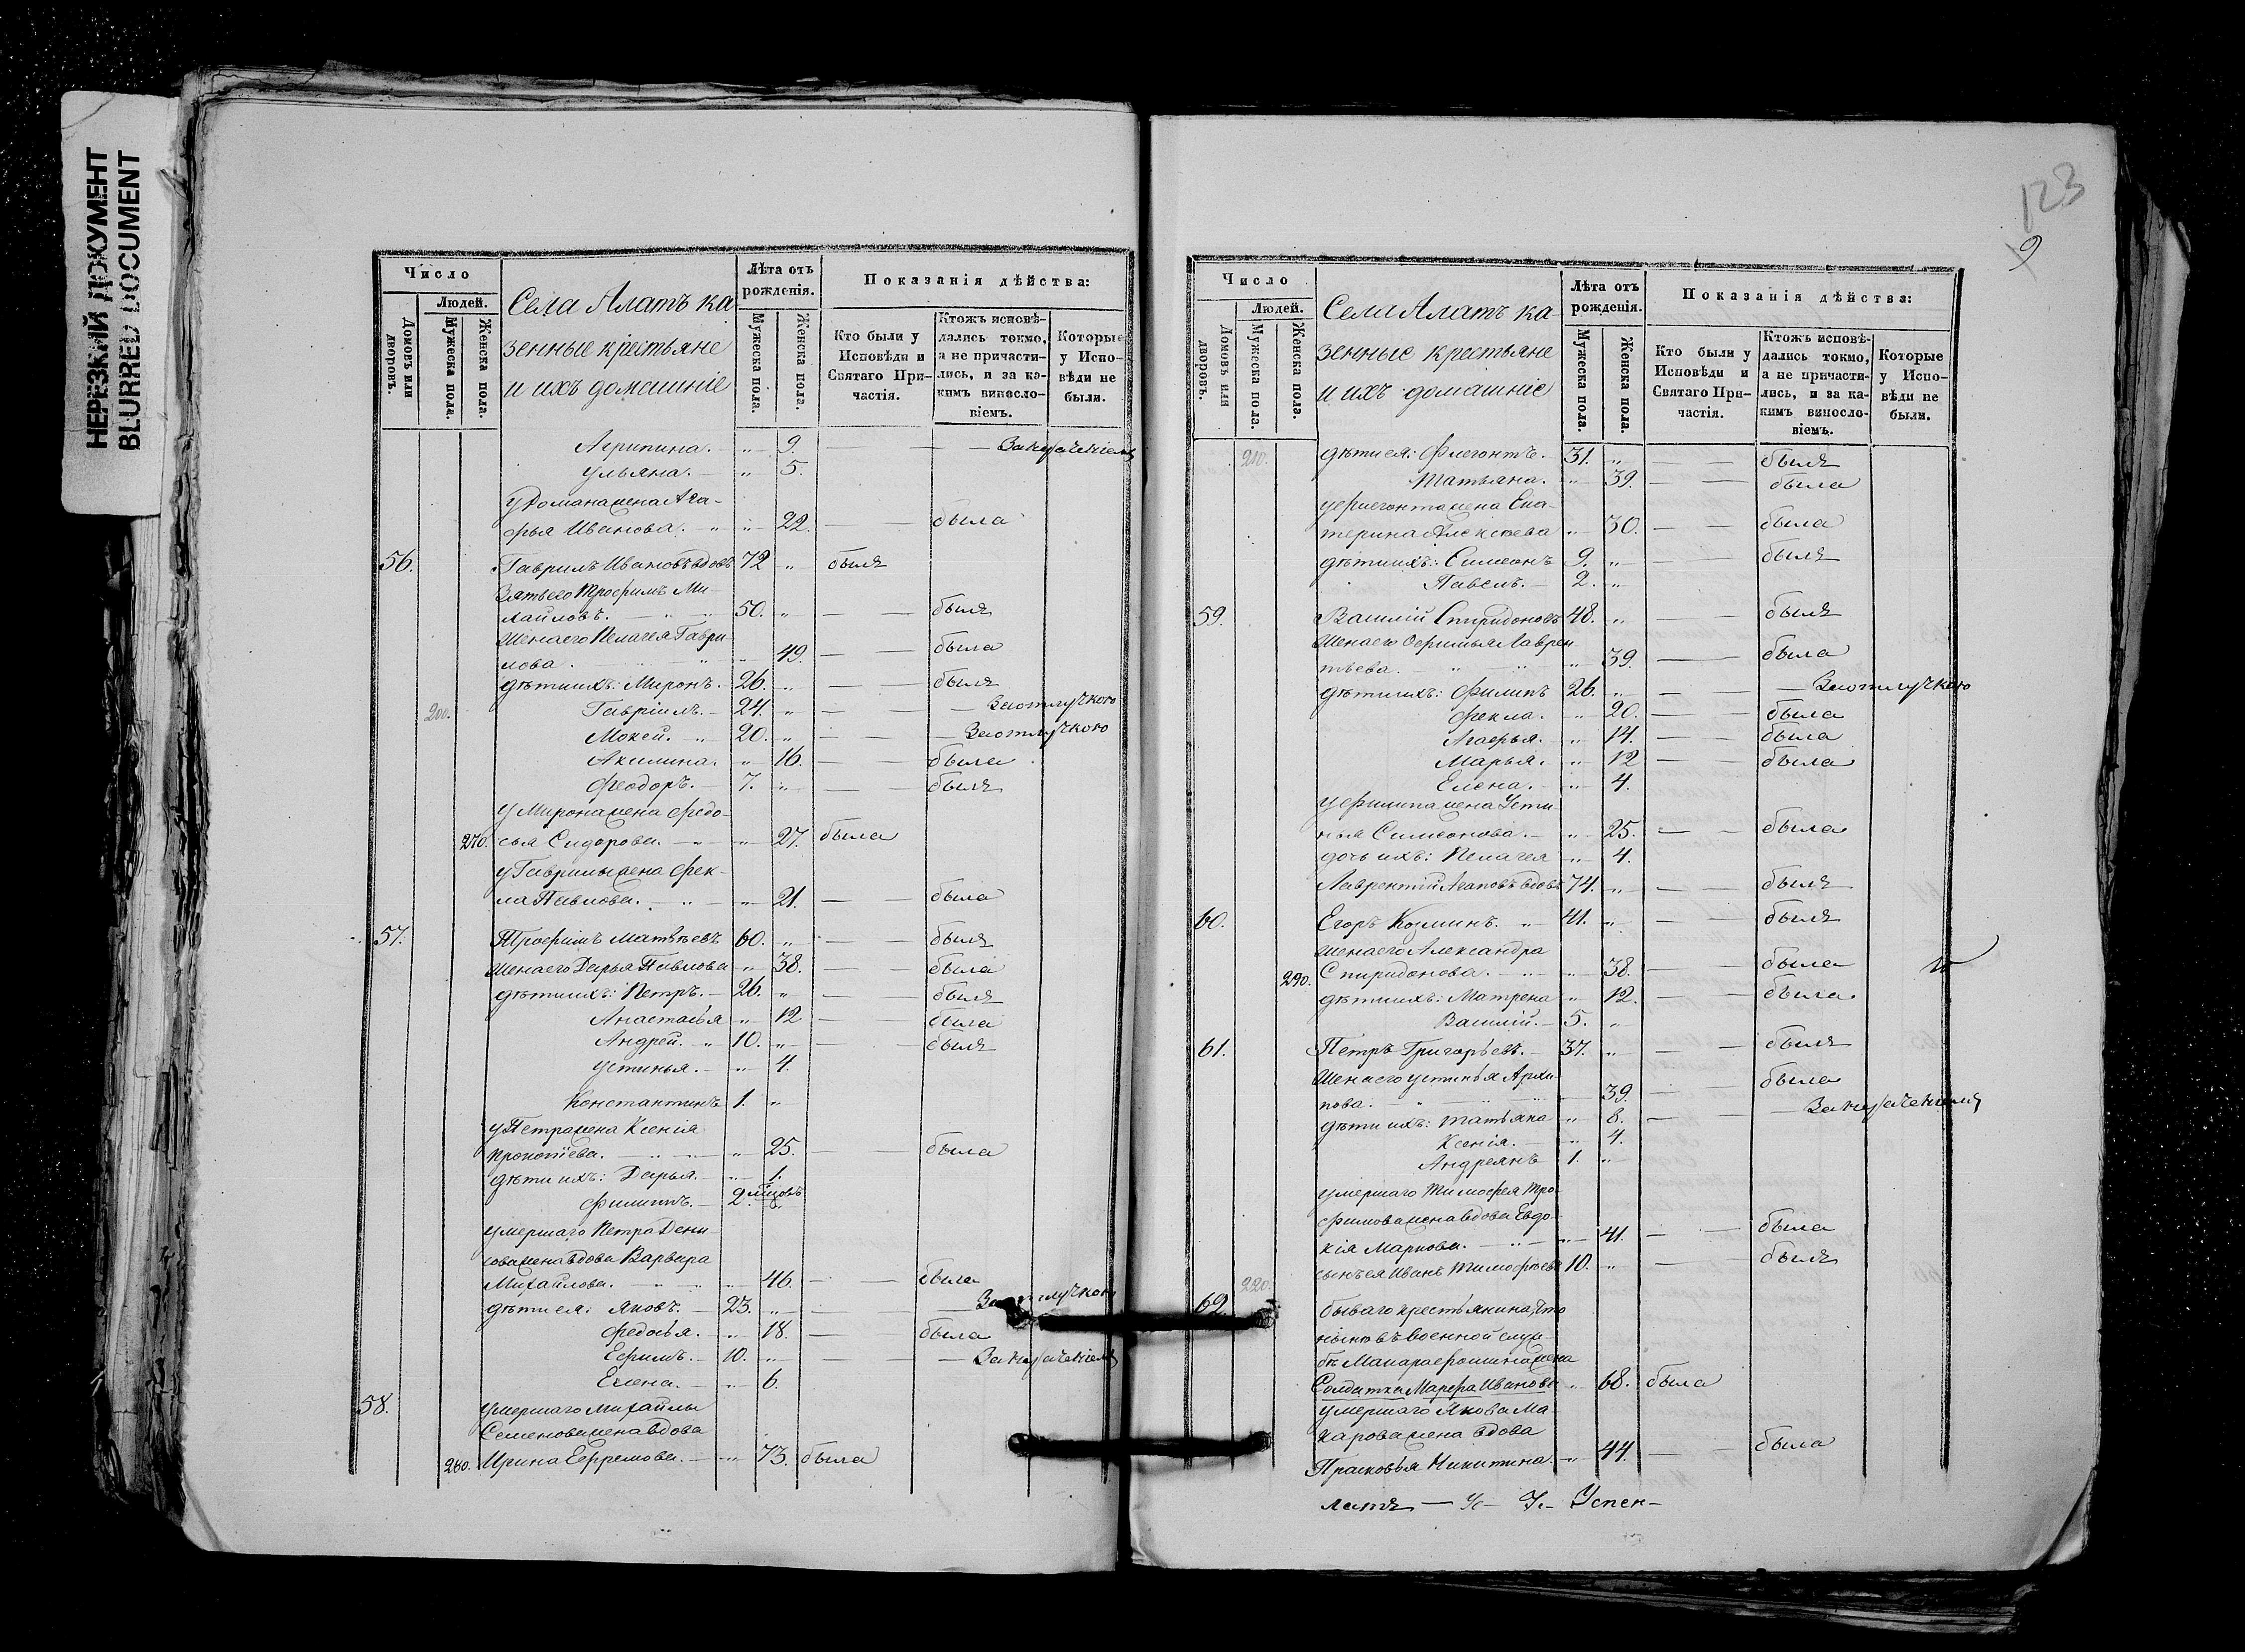 НЕРЕЗКИЙ ДОКУМЕНТ
BLURRED DOCUMENT
Число
Людей.
Домовъ или дворовъ.
Мужеска пола.
Женска пола.
Села Алатъ ка
зенные крестьяне
и ихъ домашніе
Лѣта отъ рожденія.
Мужеска пола.
Женска пола.
Показанія дѣйства:
Кто были у Исповѣди и Святаго Причастія.
Ктожъ исповѣдались токмо, а не причастились, и за какимъ винословіемъ.
Которые у Исповѣди не были.
Агрипина. „ 9.
Ульяна. „ 5.
У Романа жена Ага-
фья Иванова. „ „ 22. — — была
56. Гаврилъ Ивановъ вдовъ 72 „ былъ
Зять его Трофимъ Ми-
хайловъ. „ „ 50. „ — — былъ
Жена его Пелагея Гаври-
лова. „ „ 49. — — была
дѣти ихъ: Миронъ. 26. „ — — былъ
200. Гавріилъ. 24. „ — — За отлучкою
Мокей. „ 20. „ — — За отлучкою
Акилина. „ 16. — — была
Феодоръ. 7. „ — — былъ
У Мирона жена Федо-
270. сья Сидорова. „ „ 27. была
У Гаврилы жена Фек-
ла Павлова. „ „ 21. — — была
57. Трофимъ Матвѣевъ 60. „ — — былъ
Жена его Дарья Павлова „ 38. — — была
дѣти ихъ: Петръ. 26. „ — — былъ
Анастасья „ 12 — — была
Андрей. „ 10. „ — — былъ
Устинья. „ 4.
Константинъ 1. „
У Петра жена Ксенія
Прокопіева. „ „ 25. — — была
дѣти ихъ: Дарья. „ 1.
Филиппъ. 2
умершаго Петра Дени-
сова жена вдова Варвара
Михайлова. „ „ 46. — — была
дѣти ея: Яковъ. 23. „ — — За отлучкою
Федосья. „ 18. — была
Ефимъ. 10. „ — —
Елена. „ 6.
58. умершаго Михайлы
Семенова жена вдова
280. Ирина Ефремова. „ 73. была
123
9
Число
Людей.
Домовъ или дворовъ.
Мужеска пола.
Женска пола.
Села Алатъ ка-
зенные крестьяне
и ихъ домашніе
Лѣта отъ рожденія.
Мужеска пола.
Женска пола.
Показанія дѣйства:
Кто были у Исповѣди и Святаго Причастія.
Ктожъ исповѣдались токмо, а не причастились, и за какимъ винословіемъ.
Которые у Исповѣди не были.
210. дѣти ея: Флегонтъ. 31. „ — — былъ
Татьяна. „ 39. — — была
у Флегонта жена Ека-
терина Алексѣева „ 30. — — была
дѣти ихъ: Симеонъ 9. „ — — былъ
Павелъ. 2. „
59. Василій Спиридоновъ 48. „ — — былъ
Жена его Офимья Лаврен
тьева. „ „ „ 39. — — была
дѣти ихъ: Филипъ 26. „ — — За отлучкою
Фекла. „ 20. — — была
Агафья. „ 14. — — была
Марья. „ 12 — — была
Елена. „ 4.
У Филипа жена Усти
нья Симеонова. „ 25. — — была
дочь ихъ: Пелагея „ 4.
Лаврентій Агаповъ вдовъ 74. „ — — былъ
60. Егоръ Козминъ. „ 41. „ — — былъ
Жена его Александра
290. Спиридонова. „ „ 38. — — была
дѣти ихъ: Матрена „ 12. — — была
Василій. 5. „
61. Петръ Григорьевъ. 37. „ — — былъ
Жена его Устинья Архи-
пова. „ „ „ 39. — — была
дѣти ихъ: Татьяна „ 8. —
Ксенія. „ 4.
Андреянъ 1. „
умершаго Тимофея Тро-
фимова жена вдова Евдо-
кія Маркова. „ „ 41. — — была
220. сынъ ея Иванъ Тимофѣевъ 10. „ — — былъ
62. бываго крестьянина, что
нынѣ въ военной служ-
бѣ Макара Фомина жена
Солдатка Марфа Иванова „ 68. была
умершаго Якова Ма-
карова жена вдова
Прасковья Никитина. „ 44. — — была
латъ — Ус— Успен—